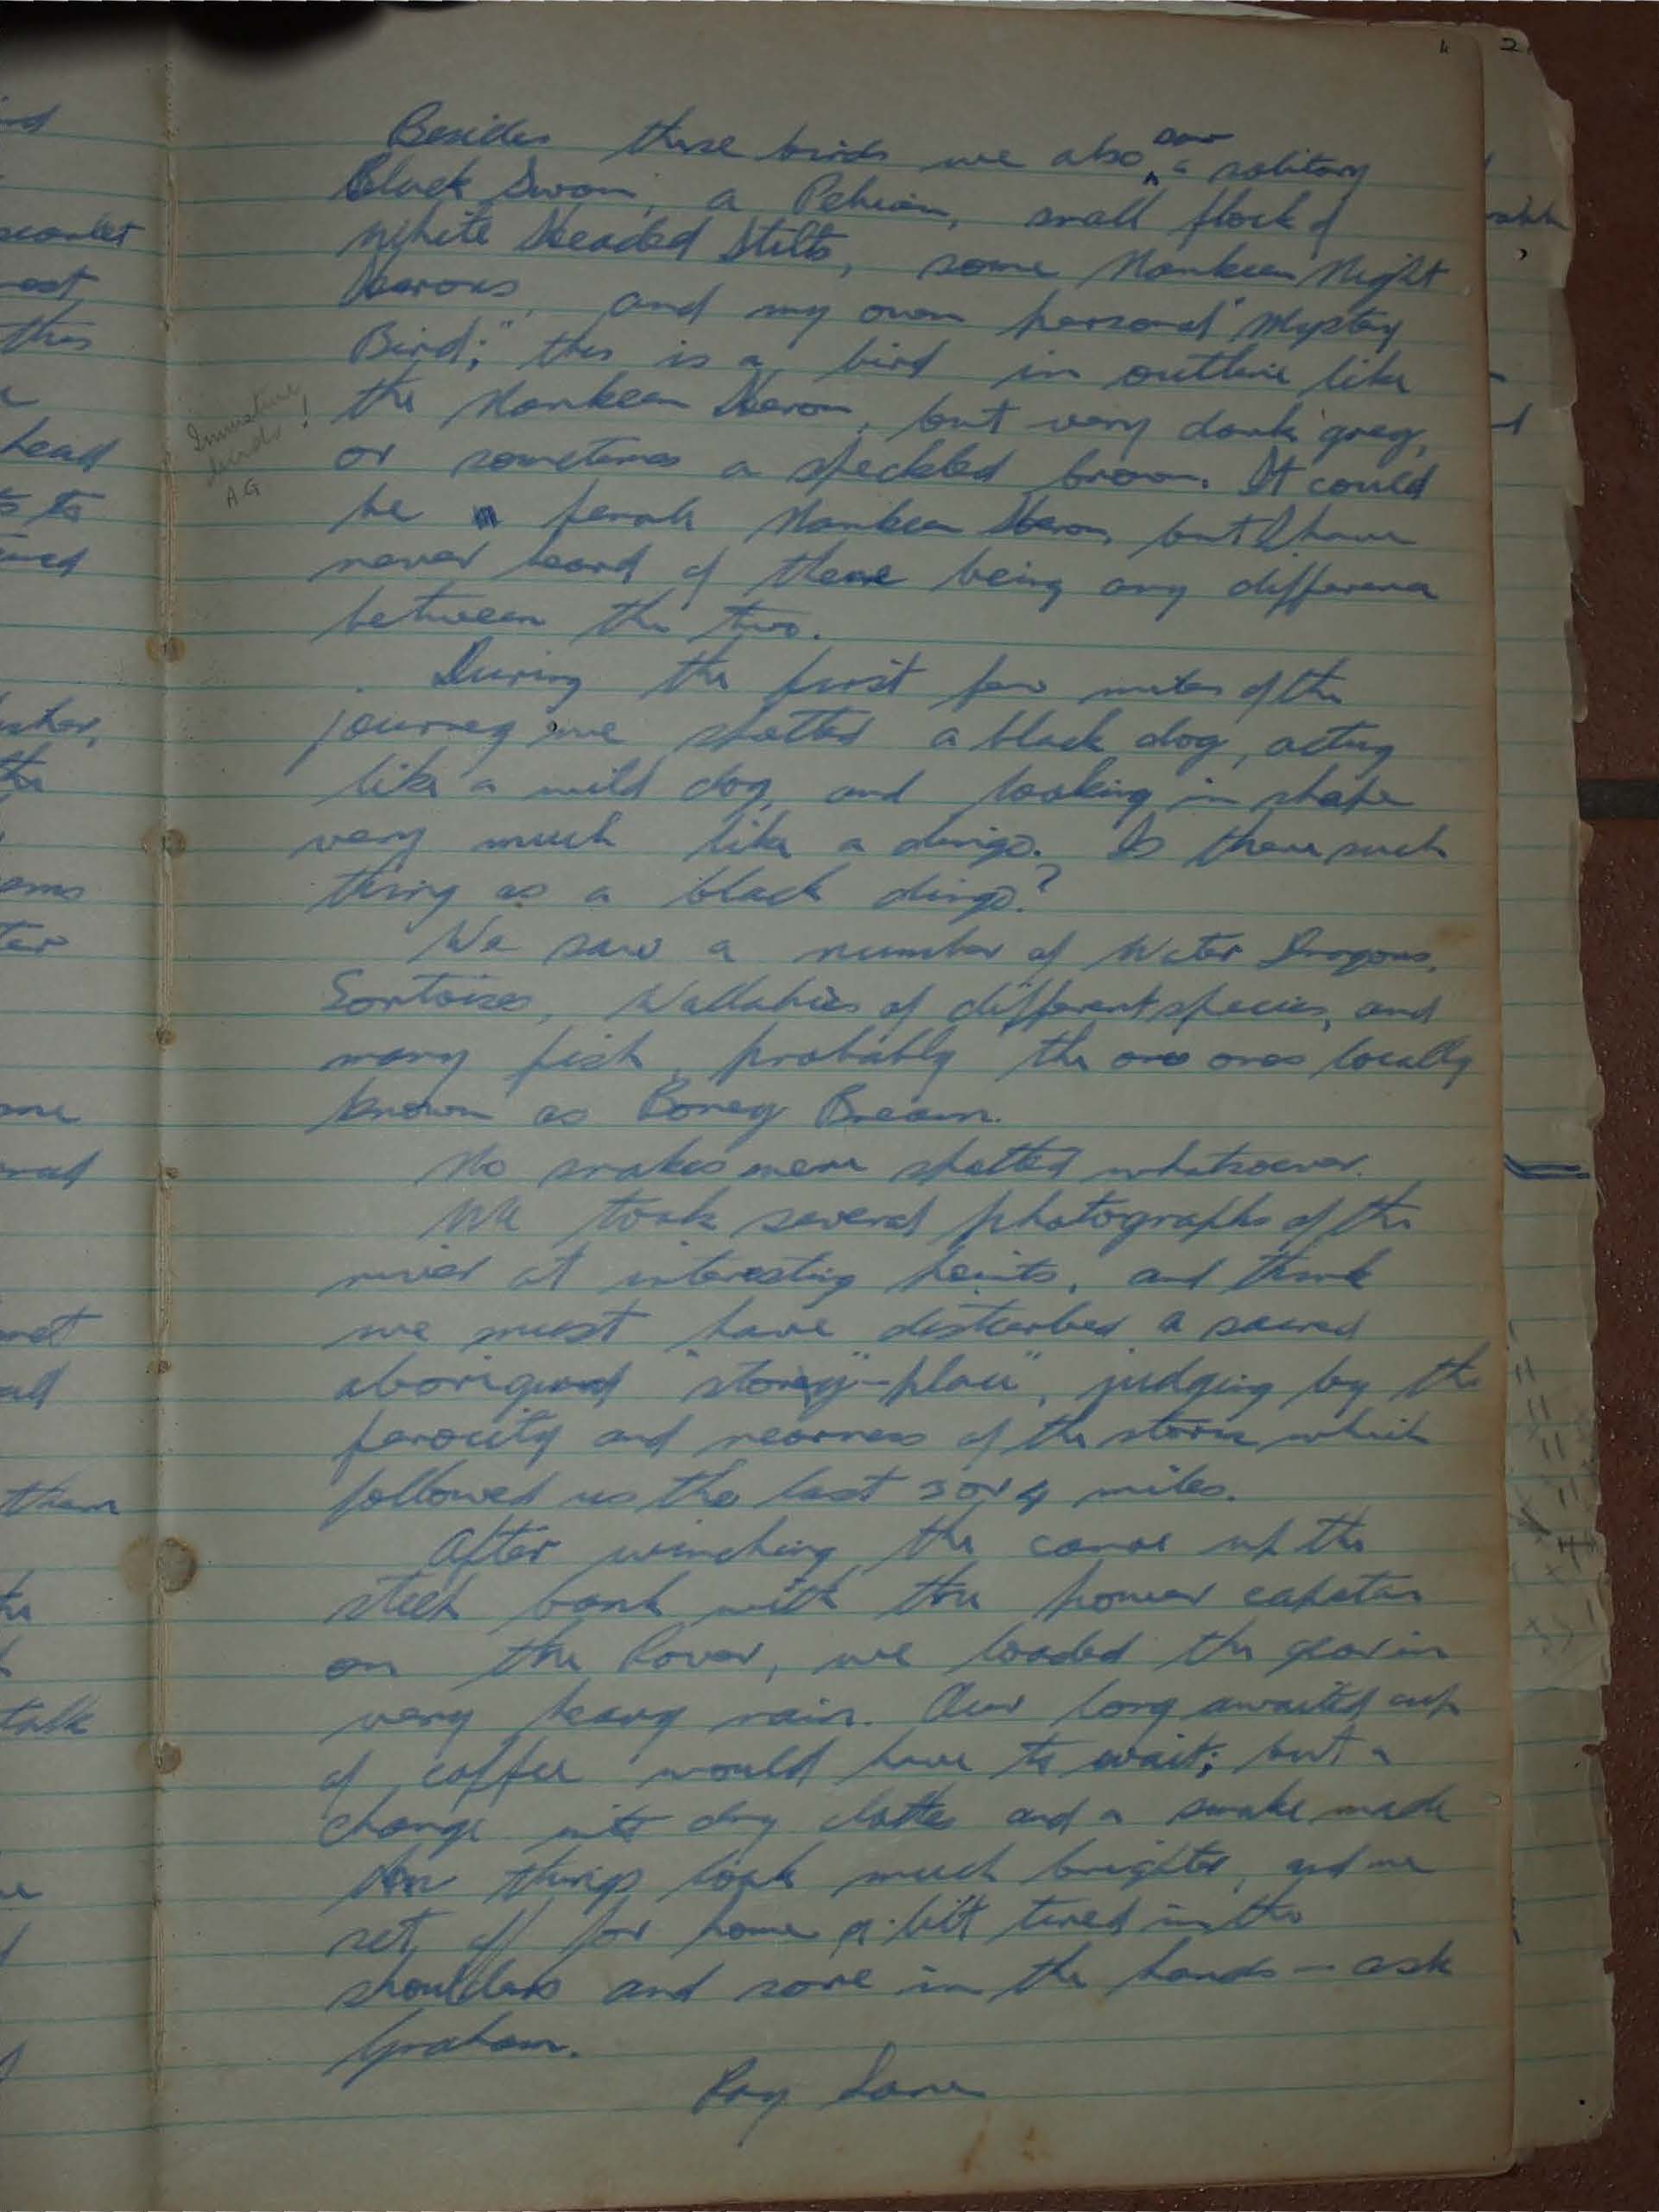 Besides these birds we also saw a solitary
Black Swan, a Pelican, small flock of
White Headed Stilts, some Nankeen Night
Herons, and my own personal "Mystery
Bird;" this is a bird in outline like
the Nankeen Heron, but very dark grey,
or sometimes a speckled brown. It could
be a female Nankeen Heron, but I have
never heard of there being any difference
between the two.
Immature
birds!
AG
During the first few miles of the
journey we spotted a black dog, acting
like a wild dog, and looking in shape
very much like a dingo. Is there such
thing as a black dingo?
We saw a number of Water Dragons,
Tortoises, Wallabies of different species, and
many fish, probably the ones locally
known as Boney Bream.
No snakes were spotted whatsoever.
We took several photographs of the
river at interesting points, and think
we must have disturbed a sacred
aboriginal "storey-place", judging by the
ferocity and nearness of the storm which
followed us the last 3 or 4 miles.
After winching the canoe up the
steep bank with the power capstan
on the Rover, we loaded the gear in
very heavy rain. Our long awaited cup
of coffee would have to wait; but a
change into dry clothes and a smoke made
things look much brighter, and we
set off for home a bit tired in the
shoulders and sore in the hands - ask
Graham.
Ray
scarlet
this
head
talk